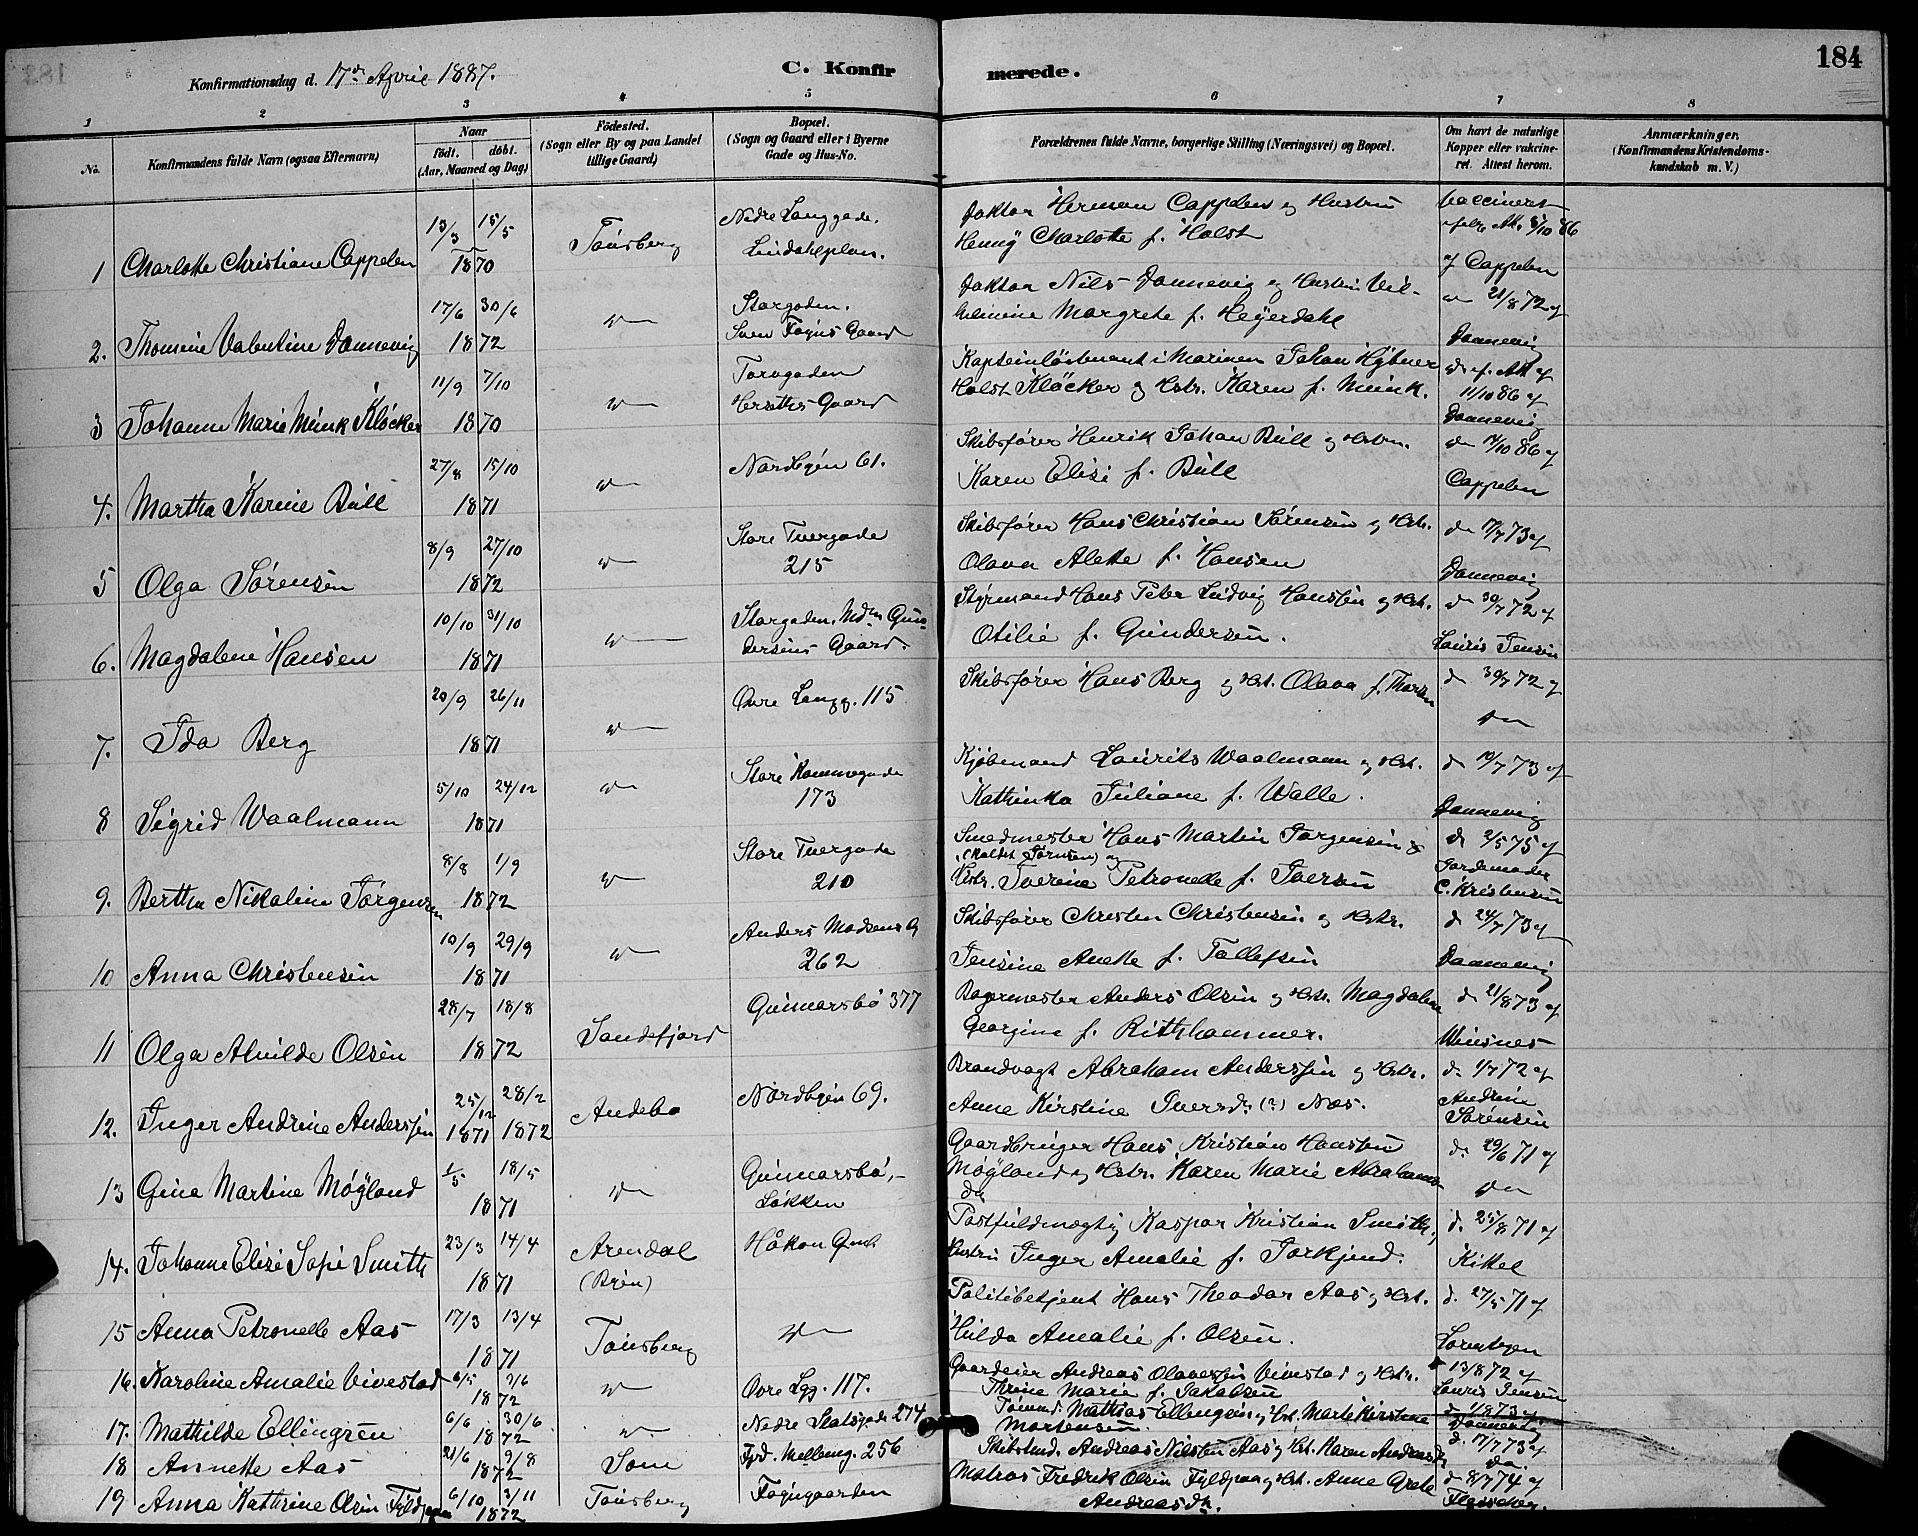 184
Konfirmationsdag d. 17de April 1887.
C. Konfirmerede.
1 2 3 4 5 6 7 8
No.
Konfirmandens fulde Navn (ogsaa Efternavn)
Naar
födt. döbt.
(Aar, Maaned og Dag)
Födested.
(Sogn eller By og paa Landet
tillige Gaard)
Bopæl.
(Sogn og Gaard eller i Byerne
Gade og Hus-No.
Forældrenes fulde Navne, borgerlige Stilling (Næringsvei) og Bopæl.
Om havt de naturlige
Kopper eller vakcine-
ret. Attest herom.
Anmærkninger.
(Konfirmandens Kristendoms-
kundskab m. V.)
1 Charlotte Christiane Cappelen 13/3 15/5 1870 Tönsberg Nedre Langgade. Lindahlplan.
Doktor Herman Cappelen og Hustru
Henny Charlotte f. Holst
vaccineret
af Cappelen
2. Thomine Valentine Dannevig 17/6 30/6 1872 Storgaden. Sven Föyns Gaard
Doktor Nils Dannevig og Hustru Vil-
helmine Margrete f. Heyerdahl
21/8 72 af
Dannevig
3 Johanne Marie Münk Klöcker 11/9 7/10 1870 Torvgaden
Gaard
Kapteinlöitenant i Marinen Johan Hybner
Holst Klöcker og Hstr. Karen f. Münk.
11/10 86 af
Dannevig
4. Martha Karine Büll 27/8 15/10 1871 Nordbyen 61.
Skibsfører Henrik Johan Büll og Hstr.
Karen Elise f. Büll
14/10 86 af
Cappelen
5 Olga Sörensen 8/9 27/10 1872 Store Tvergade 215
Skibsfører Hans Christian Sörensen og Hstr.
Olava Alette f. Hansen
17/7 73 af
Dannevig
6. Magdalene Hansen 10/10 31/10 1871 Storgaden, Mdm Gun-
dersens Gaard.
Styrmand Hans Peter Ludvig Hanssen og Hst.
Otilie f. Gundersen.
30/7 72 af
Lauris Jensen
7. Ida Berg 20/9 26/11 1871 Övre Langg. 115
Skibsfører Hans Berg og Hst. Olava f.
30/7 72 af
8 Sigrid Waalmann 5/10 24/12 1871 Store Kannegade 173
Kjøbmand Laurits Waalmann og Hst.
Kathinka Juliane f. Walle.
10/7 73 af
Dannevig
9. Berthe Nikoline Jörgensen 8/8 1/9 1872 Store Tvergade 210
Smedmester Hans Martin Jørgensen
(kaldet Jörnsen) og
Hstr. Iverine Petronelle f. Iversen
2/5 75 af
Jordemoder
C. Kristensen
10 Anna Christensen 10/9 29/9 1871 Anders Madsens G 262
Skibsfører Christen Christensen og Hstr.
Jensine Anette f. Tollefsen
24/7 73 af
Dannevig
11 Olga Alvilde Olsen 28/7 18/8 1872 Sandefjord Gunnarsbö 377
Bagermester Anders Olsen og Hstr. Magdalene
Georgine f. Rithhammer.
21/8 73 af
Winsnes
12. Inger Andrine Anderssen 25/12 1871 28/2 1872 Andebo Nordbyen 69.
Brandvagt Abraham Anderssen og Hstr.
Anne Kirstine Iversdr (?) Næs.
1/7 72 af
Andrine
Sörensen
13 Gina Martine Møgland 1/5 18/5 1871 Gunnarsbö,
Løkken
Gaardbruger Hans Kristian Hanssen
Møgland og Hstr. Karen Marie Abrahams-
dr
29/6 71 af
14. Johanne Elise Sofie Smith 23/3 14/4 1871 Arendal
Håkon G
Postfuldmægtig Kaspar Kristian Smith,
Hustru Inger Amalie f. Torkjend.
d. 25/8 71 af
Kittel
15 Anna Petronelle Aas 17/3 13/4 1871 Tönsberg
Politibetjent Hans Theodor Aas og Hst.
Hilda Amalie f. Olsen.
d. 27/5 71 af
Lorentzen
16. Karoline Amalie Vivestad 6/5 2/6 1872 Övre Lgg. 117.
Gaardeier Andreas Olavessen Vivestad og Hstr.
Thrine Marie f. Jakobsen
13/8 72 af
Lauris Jensen
17. Mathilde Ellingsen 6/6 30/6 1872 Nedre Slotsgade 274
Tømmd. Mathias Ellingsen og Hst. Marte Kirstine
Mortensen
Dannevig
18 Annette Aas 21/6 2/8 1872 Sem 256
Skibstmd. Andreas Nilssen Aas og Hst. Karen Andreasdr
d. 17/7 73 af
do.
19 Anna Kathrine Olsen Fyldpaa 6/10 3/11 1872 Tönsberg Føyngaarden
Matros Fredrik Olsen Fyldpaa og Hst. Anne Grete
Andreasdr.
8/7 74 af